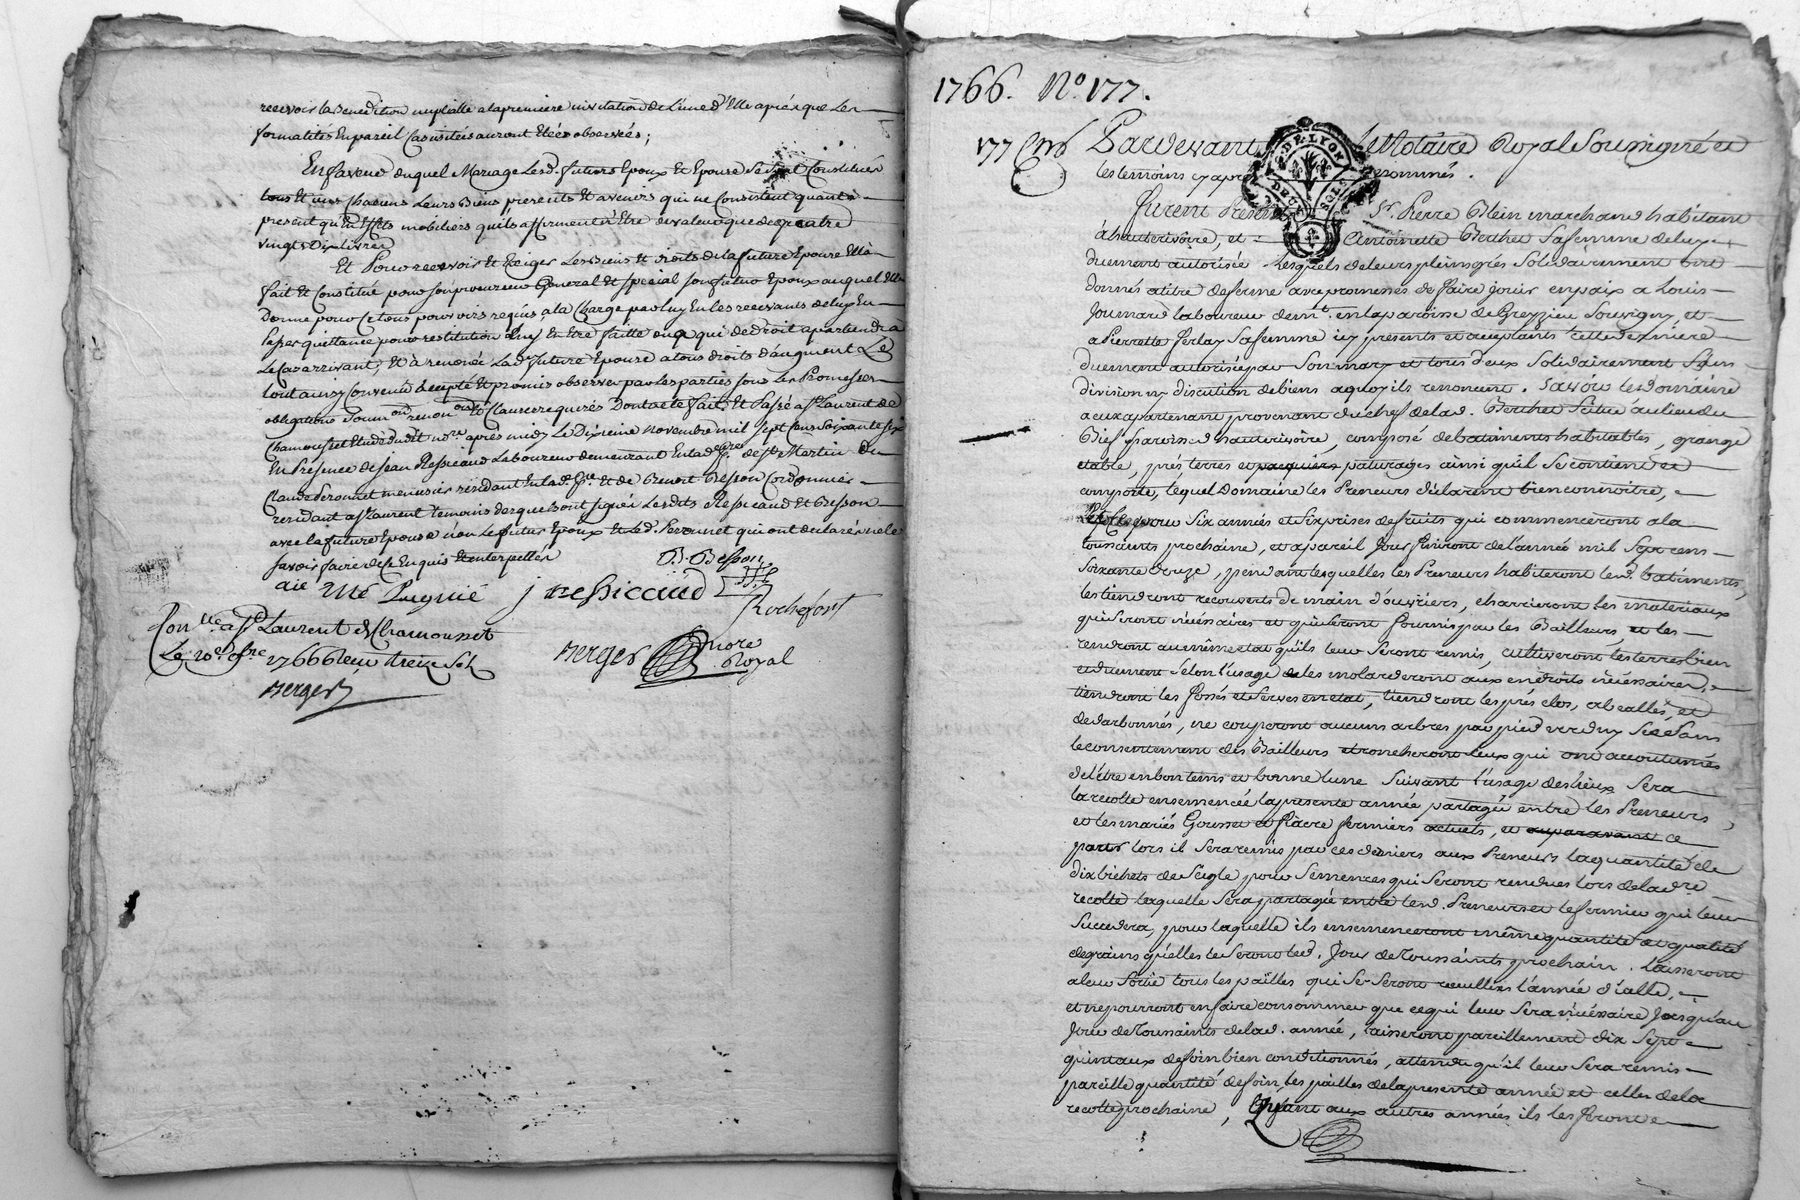 recevoir la Benediction nuptialle a la premiere invitation de L'une d'Elle aprés que Les
formalités En pareil Cas usitées auront Etées observées;
En faveur duquel Mariage Lesd. futurs Epoux et Epouse Se Sont Constitués
tous et uns Chacuns Leurs Biens presents Et avenirs qui ne Consistent quant à
present qu'En Effets mobiliers qu'ils affirment n'Etre de valeur que de quatre
vingts Dix livres
Et Pour recevoir Et Exiger Les Biens Et droits de la future Epouse Ella
fait Et Constitué pour Son procureur General Et special Son futur Epoux auquel Elle
Donne pouvoir Et tous pouvoirs requis, a la Charge par luy En les recevants de luy En
passer quittance pour restitution luy En Etre faitte ou a qui de droit apartiendra
Le Cas arrivant, Et à renoncé Lad. future Epouse a tous droits d'augment Le
tout ainsy Convenu accepté Et promis observer par Les parties sous Les Promesses
obligations Soum.ons renon.ons Et Clauses requises Dont acte fait Et Passé a St. Laurent de
Chamousset Etude dudit no.re après midy Le Dixieme novembre mil Sept Cens Soixante Six
En Presence de Jean Ressicaud Laboureur demeurant En lad. p.sse de St. Martin
Claude Peronnet menuisier residant En lad. p.sse Et de Benoit Besson Cordonnier
residant a St. Laurent temoins desquels ont signé Lesdits Ressicaud Et Besson
avec la future Epouse non Le futur Epoux Et Led. Peronnet qui ont declaré ne le
savoir faire de ce Enquis Et interpellés
B. Besson
j ressicaud
Rochefort
Berger nore Royal
Con.lle a St. Laurent de Chamousset
Le 20e 9bre 1766 Reçu treize Sols
Berger
1766. No. 177.
177 Pardevant le Notaire Royal Soussigné et
les temoins cy apres nommés.
DE LYON
DEUX SOLS
furent Presents Sr. Pierre Blein marchand habitant
à hauterivoire, et Antoinette Berthet Sa femme de luy
duement autorisée Lesquels de leurs pleins grés Solidairement ont
donnés a titre de ferme avec promesses de faire jouir en paix a Louis
Journard laboureur dem.t en la paroisse de Grezzieu Souvigny et
a Pierrette ferlay Sa femme icy presents et acceptants cette derniere
duement autorisée par Son mary et tous deux Solidairement Sans
division ny discution de biens a quoy ils renoncent. Savoir le domaine
a eux apartenant provenant du chef de lad. Berthet Scitué au lieu du
Bief paroisse d'hauterivoire, composé de batiments habitables, grange
etable, prés terres et pacquiers paturages ainsi qu'il Se contient et
comporte, lequel Domaine les Preneurs declarent bien connoitre,
Et Ce pour Six années et Six prises de fruits qui commenceront a la
toussaints prochaine, et a pareil Jour finiront de l'année mil Sept cens
Soixante douze, pendant lesquelles les Preneurs habiteront lesd. batiments,
les tiendront recouverts de main d'ouvriers, charrieront les materiaux
qui Seront nécessaires et qui Seront fournis par les Bailleurs, et les
rendront au même etat qu'ils leur Seront remis, cultiveront les terres bien
et duement Selon l'usage et les molarderont aux endroits nécessaires,
tiendront les fossés et Serves en etat, tiendront les prés clos, abeallés, et
detarbonnés, ne couperont aucuns arbres par pied verd ny Sec Sans
le consentement des Bailleurs etroncheront ceux qui ont accoutumés
de l'être en bon tems et bonne lune Suivant l'usage des lieux Sera
la recolte ensemencée la presente année partagée entre les Preneurs,
et les mariés Gousset et fiacre fermiers actuels, et auparavant ce
partir lors il Sera remis par ces derniers aux Preneurs la quantité de
dix bichets de Seigle pour Semences qui Seront rendues lors de lad. re
recolte laquelle Sera partagée entre lesd. Preneurs et le fermier qui leur
Succedera, pour laquelle ils ensemenceront même quantité et qualité
de grains qu'elles le Seront led. Jour de Toussaints prochain. Laisseront
a leur Sortie tous les pailles qui Se Seront recuillies l'année d'icelle,
et ne pourront en faire consommer que ce qui leur Sera nécessaire Jusqu'au
Jour de Toussaints de lad. année, laisseront pareillement dix Sept
quintaux de foin bien conditionnés, attendu qu'il leur Sera remis
pareille quantité de foin, les pailles de la presente année et celles de la
recolte prochaine, Quant aux autres années ils les feront